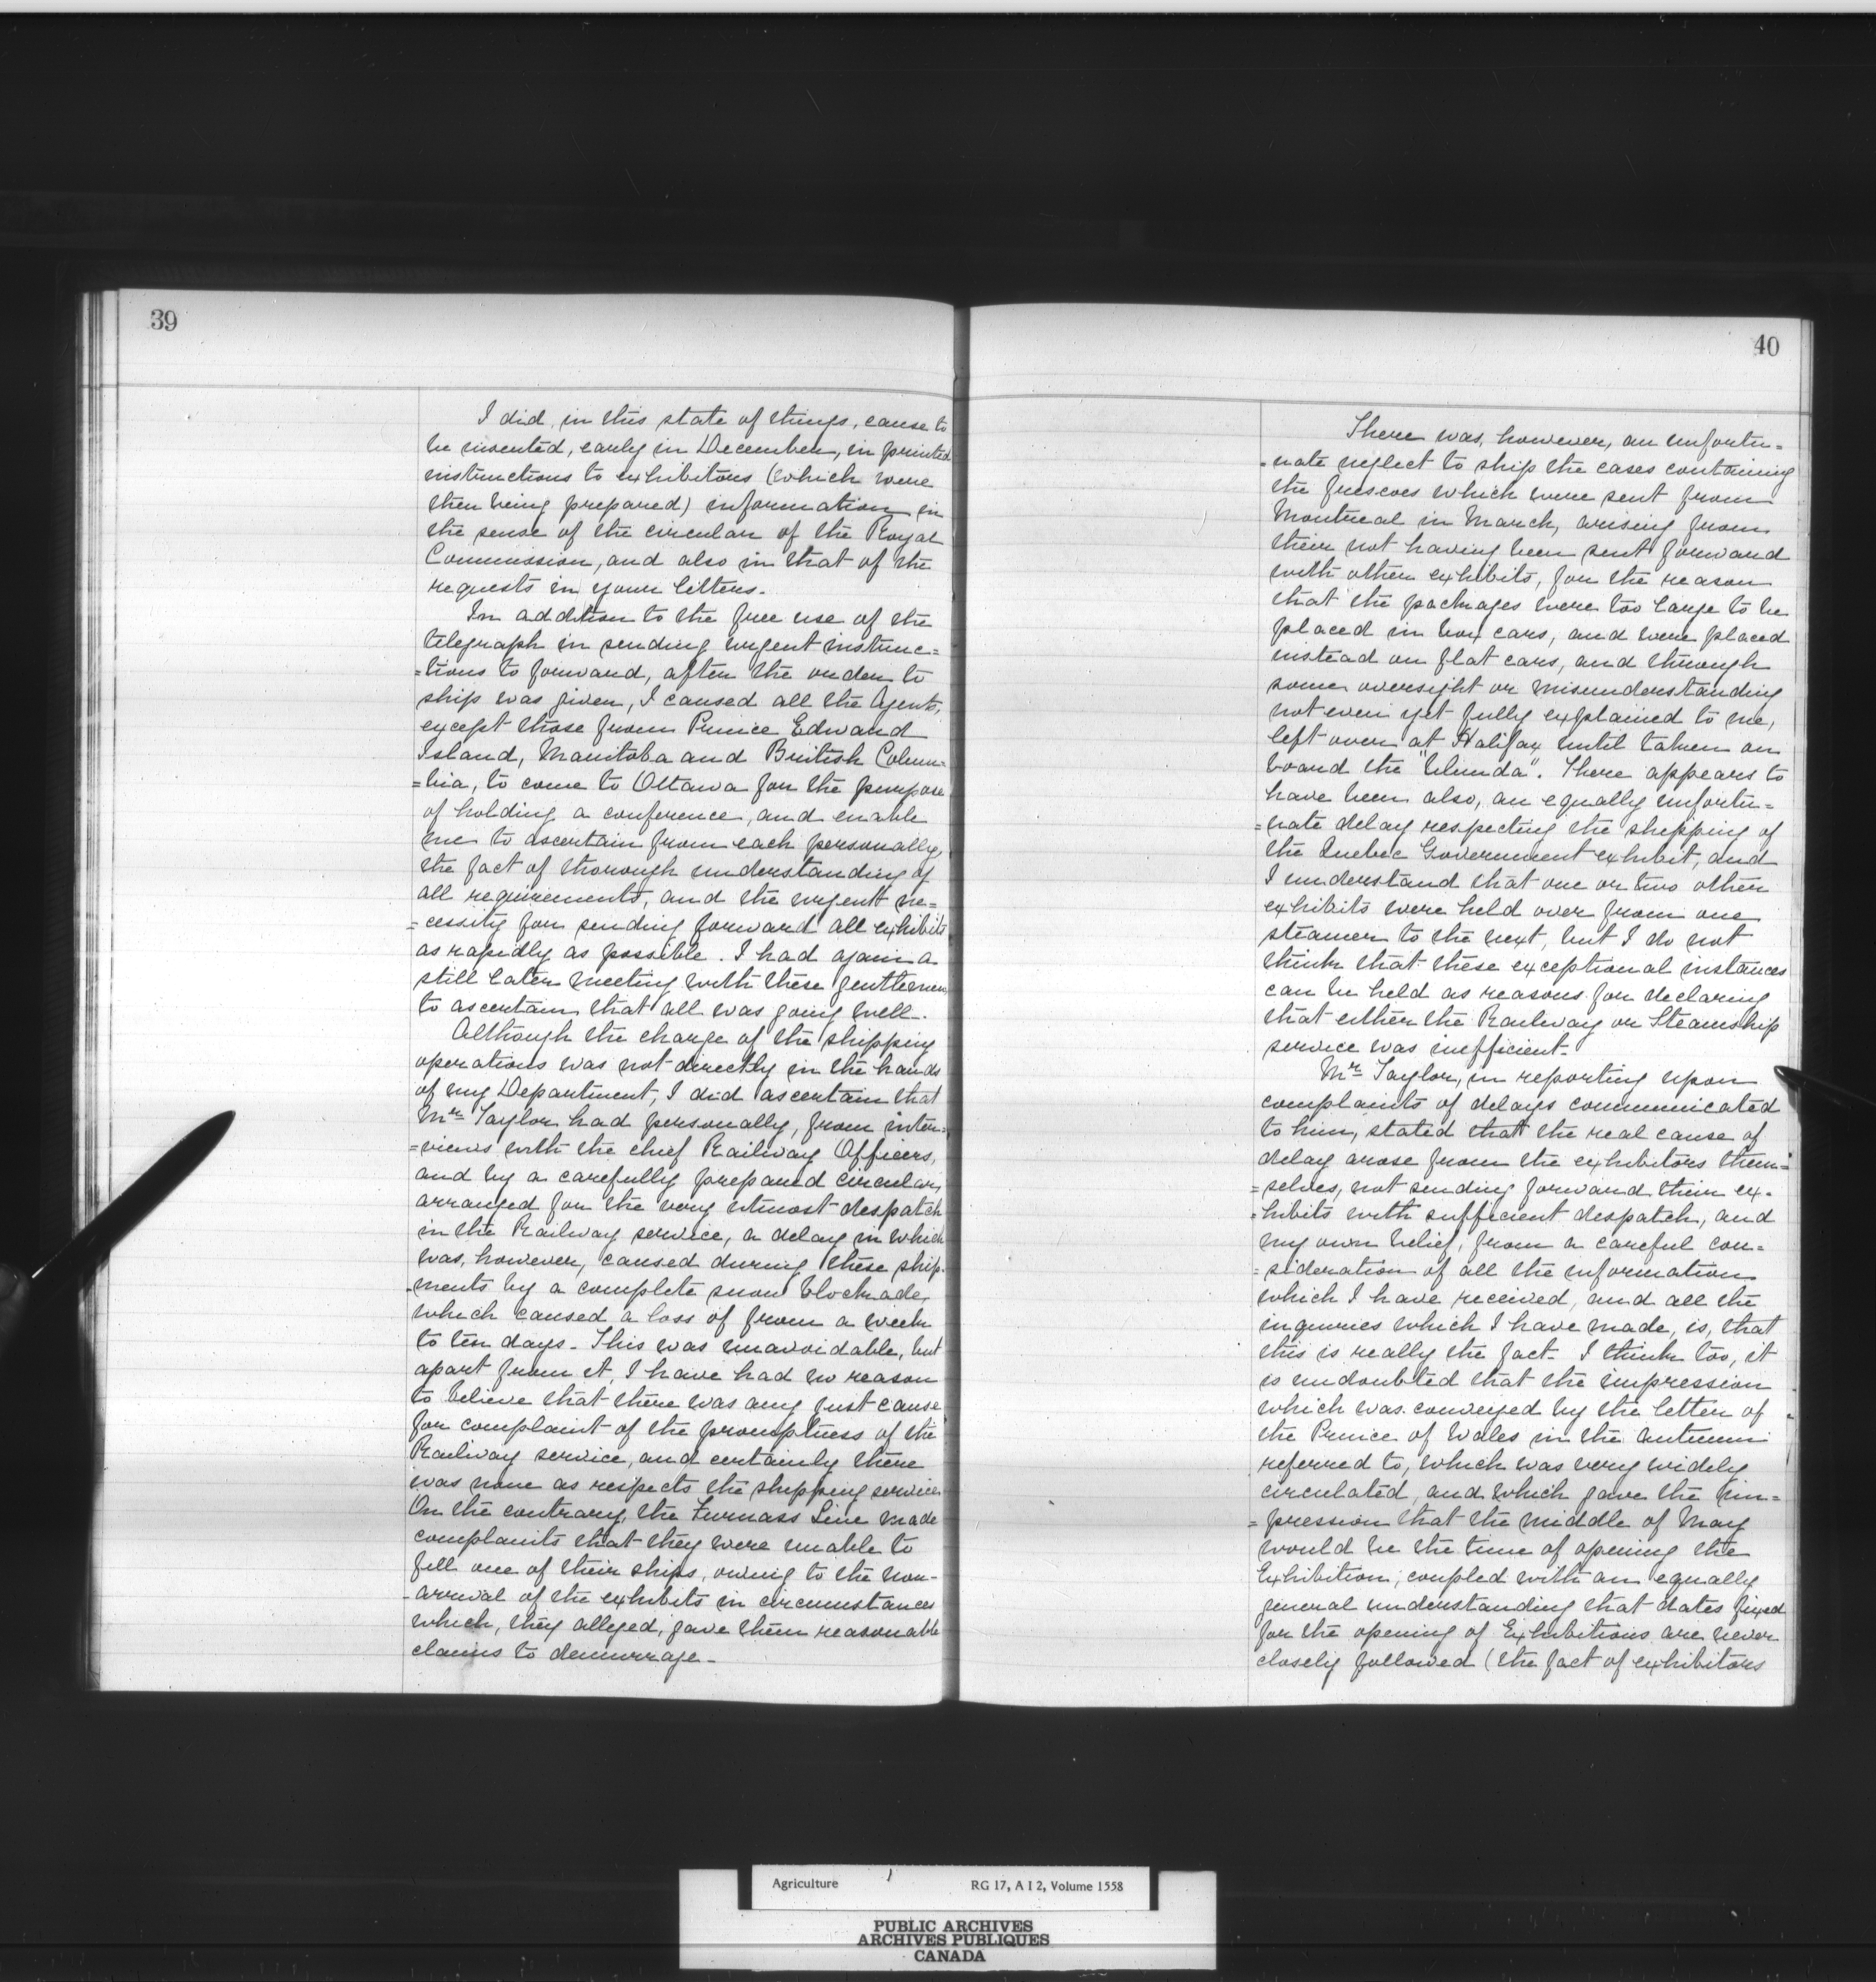 39
I did, in this state of things, cause to
be inserted, early in December, in printed
instructions to exhibitors (which were
then being prepared) information in
the sense of the circular of the Royal
Commission, and also in that of the
requests in your letters.
In addition to the free use of the
telegraph in sending urgent instruc=
=tions to forward, after the order to
ship was given, I caused all the Agents,
except those from Prince Edward
Island, Manitoba and British Colum=
=bia, to come to Ottawa for the purpose
of holding a conference, and enable
me to ascertain from each personally,
the fact of thorough understanding of
all requirements, and the urgent ne=
=cessity for sending forward all exhibits
as rapidly as possible. I had again a
still later meeting with these gentlemen,
to ascertain that all was going well.
Although the charge of the shipping
operations was not directly in the hands
of my Department, I did ascertain that
Mr. Taylor had personally, from inter=
=views with the chief Railway Officers,
and by a carefully prepared circular,
arranged for the very utmost despatch
in the Railway service, a delay in which
was, however, caused during these ship-
-ments by a complete snow blockade,
which caused a loss of from a week
to ten days. This was unavoidable, but
apart from it, I have had no reason
to believe that there was any just cause
for complaint of the promptness of the
Railway service, and certainly there
was none as respects the shipping service.
On the contrary, the Furnass Line made
complaints that they were unable to
fill one of their ships, owing to the non-
-arrival of the exhibits in circumstances
which, they alleged, gave them reasonable
claims to demurrage.
40
There was, however, an unfortu=
=nate neglect to ship the cases containing
the frescoes which were sent from
Montreal in March, arising from
their not having been sent forward
with other exhibits, for the reason
that the packages were too large to be
placed in box cars, and were placed
instead on flat cars, and through
some oversight or misunderstanding
not even yet fully explained to me,
left over at Halifax until taken on
board the "Ulunda". There appears to
have been also, an equally unfortu=
=nate delay respecting the shipping of
the Quebec Government exhibit, and
I understand that one or two other
exhibits were held over from one
steamer to the next, but I do not
think that these exceptional instances
can be held as reasons for declaring
that either the Railway or Steamship
service was inefficient.
Mr. Taylor, in reporting upon
complaints of delays communicated
to him, stated that the real cause of
delay arose from the exhibitors them=
=selves, not sending forward their ex-
-hibits with sufficient despatch, and
my own belief, from a careful con=
=sideration of all the information
which I have received, and all the
inquiries which I have made, is, that
this is really the fact. I think too, it
is undoubted that the impression
which was conveyed by the letter of
the Prince of Wales in the autumn
referred to, which was very widely
circulated, and which gave the im=
=pression that the middle of May
would be the time of opening the
Exhibition, coupled with an equally
general understanding that dates fixed
for the opening of Exhibitions are never
closely followed (the fact of exhibitors
Agriculture RG 17, A I 2, Volume 1558
PUBLIC ARCHIVES
ARCHIVES PUBLIQUES
CANADA